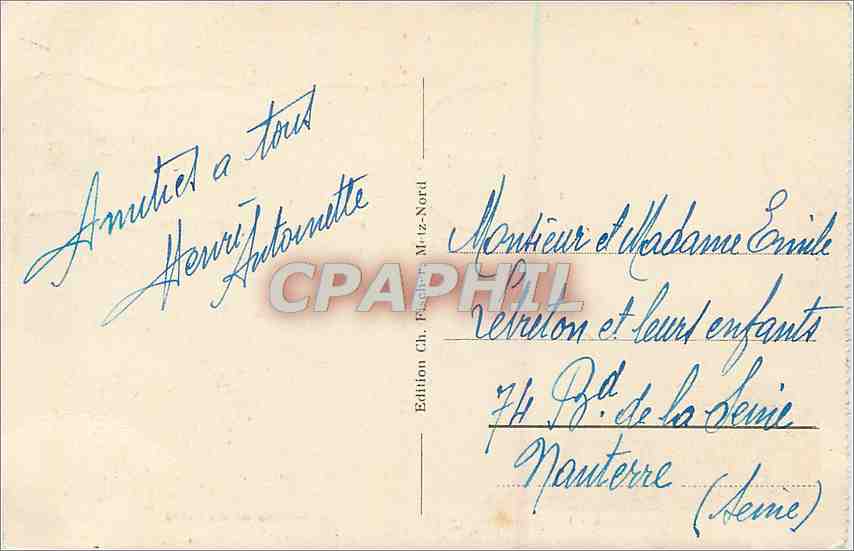 Amitiés a tous
Henri
Antoinette
Edition Ch. Fischer, Metz-Nord
CPAPHIL
Monsieur et Madame Emile
Lebreton et leurs enfants
74 Bd. de la Seine
Nanterre
(Seine)